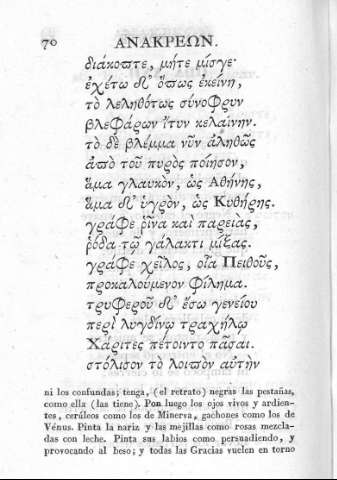 70
ΑΝΑΚΡΕΩΝ.
διάκοπτε, μήτε μίσγε·
ἐχέτω δ' ὅπως ἐκείνη,
τὸ λεληθότως σύνοφρυν
βλεφάρων ἴτυν κελαίνην.
τὸ δὲ βλέμμα νῦν ἀληθῶς
ἀπὸ τοῦ πυρὸς ποίησον,
ἅμα γλαυκὸν, ὡς Ἀθήνης,
ἅμα δ' ὑγρὸν, ὡς Κυθήρης.
γράφε ῥῖνα καὶ παρειὰς,
ῥόδα τῷ γάλακτι μίξας.
γράφε χεῖλος, οἷα Πειθοῦς,
προκαλούμενον φίλημα.
τρυφεροῦ δ' ἔσω γενείου
περὶ λυγδίνῳ τραχήλῳ
Χάριτες πέτοιντο πᾶσαι.
στόλισον τὸ λοιπὸν αὐτὴν
ni los confundas; tenga, (el retrato) negras las pestañas,
como ella (las tiene). Pon luego los ojos vivos y ardien-
tes, cerúleos como los de Minerva, gachones como los de
Vénus. Pinta la nariz y las mejillas como rosas mezcla-
das con leche. Pinta sus labios como persuadiendo, y
provocando al beso; y todas las Gracias vuelen en torno